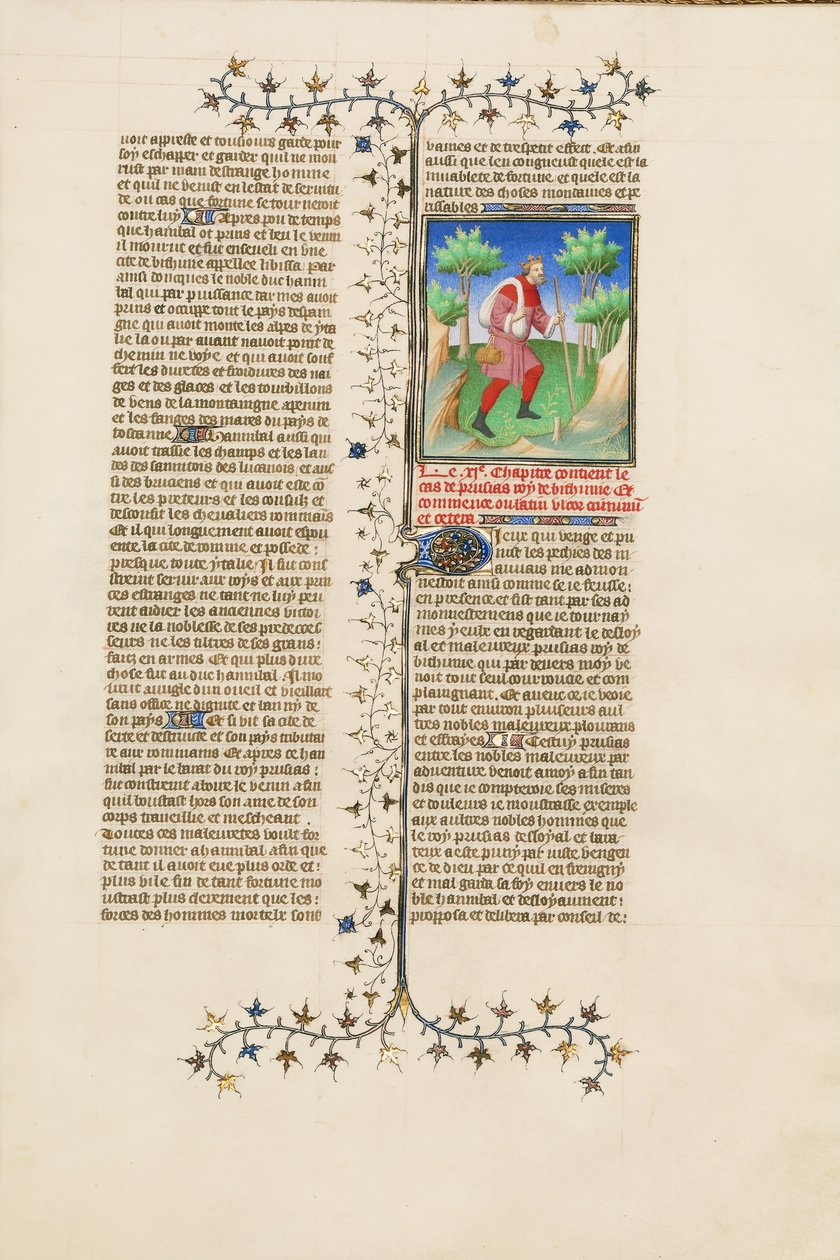 uoit appreste et tousiours garde pour
soy eschapper et garder quil ne mou
rust par main destrange homme
et quil ne venist en lestat de seruitu
de ou cas que fortune se tourneroit
contre luy Apres pou de temps
que hanibal ot prins et beu le venin
il mourut et fut enseueli en vne
cite de bithinie appellee libissa Par
ainsi doncques le noble duc hanni
bal qui par puissance darmes auoit
prins et occuppe tout le pays despai
gne qui auoit monte les alpes de yta
lie la ou par auant nauoit point de
chemin ne voye et qui auoit souf
fert les duretes et froidures des nai
ges et des glaces et les tourbillons
de vens de la montaigne apenini
et les fanges des mares du pays de
toscanne Hannibal aussi qui
auoit trasse les champs et les lan
des des samnitons des lucanois et aus
si des bruciens et qui auoit este co
tre les preteurs et les consulz et
desconfit les cheualiers rommains
Et il qui longuement auoit espou
ente la cite de romme et possede :
presque toute ytalie Il fut cons
traint seruir aux roys et aux prin
ces estranges ne tant ne luy peu
rent aidier les anciennes victoi
res ne la noblesse de ses predeces
seurs ne les tiltres de ses grans :
faitz en armes Et qui plus dure
chose fut au duc hannibal Il mo
urut auugle dun oueil et vieillart
sans office ne dignite et banny de
son pays Et si vit sa cite de
serte et destruitte et son pays tributai
re aux rommains Et apres ce han
nibal par le barat du roy prusias :
fut constraint aboire le venin afin
quil boutast hors son ame de son
corps traueillie et mescheant .
Toutes ces maleuretes voult for
tune donner a hannibal afin que
de tant il auoit eue plus orde et :
plus vile fin de tant fortune mo
ustrast plus clerement que les :
forces des hommes mortelx sont
vaines et de trespetit effect . Et afin
aussi que len congneust quele est la
muablete de fortune et quele est la
nature des choses mondaines et pe
rissables
Le .XIe. Chapitre contient le
cas de prusias roy de bithinie Et
commence ou latin Vltor criminum
et cetera
Dieux qui venge et pu
nist les pechies des m
auuais me admon
nestoit ainsi comme se ie feusse :
en presence et fist tant par ses ad
monnestemens que ie tournay
mes yeulx en regardant le desloy
al et maleureux prusias roy de
bithinie qui par deuers moy ve
noit tout seul courroucie et com
plaignant . Et auecc ce ie veoie
par tout enuiron pluseurs aul
tres nobles maleureux plourans
et effrayes Cestuy prusias
entre les nobles maleureux par
aduenture venoit amoy afin tan
dis que ie compteroie ses miseres
et douleurs ie moustrasse exemple
aux aultres nobles hommes que
le roy prusias desloyal et bara
teux a este puny par iuste vengen
ce de dieu par ce quil enfreigny
et mal garda sa foy enuers le no
ble hannibal et desloyaument :
propposa et delibera par conseil de :